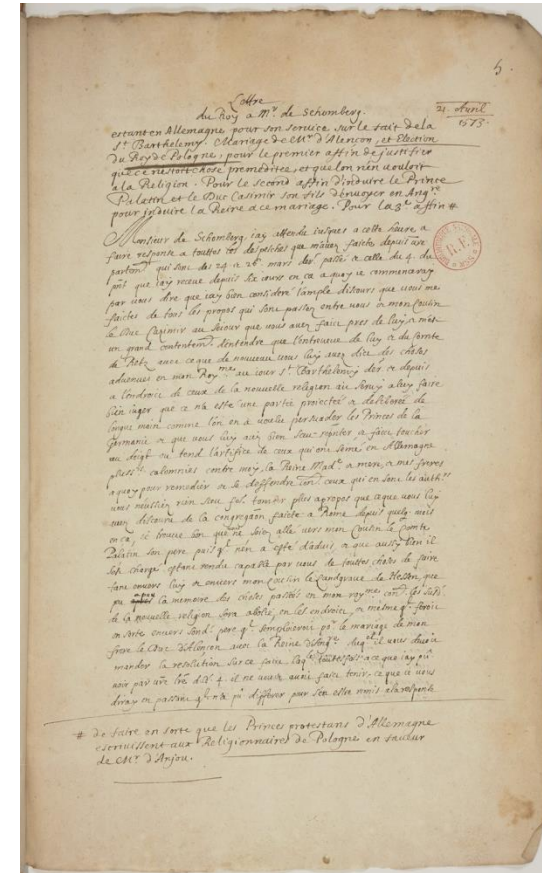 5.
Lettre
du Roy a Mr. de Schomberg.
21. Avril
1573.
estant en Allemagne pour son service sur le fait de la
St. Barthelemy. Mariage de Mr. d'Alençon, et Election
du Roy de Pologne, pour le premier affin de justifier
que ce n'estoit chose premeditée, et que l'on n'en vouloit
a la Religion. Pour le second affin d'induire le Prince
Palatin et le Duc Casimir son fils d'envoyer en Angre
pour induire la Reine a ce mariage. Pour la 3e affin #
Monsieur de Schomberg, j'ay attendu jusques a cette heure a
faire response a touttes vos despeches que m'avez faites depuis vre
partemt qui sont des 24 et 26e mars derr passé et celle du 4. du
pnt que j'ay receue depuis six jours en ca a quoy je commenceray
par vous dire que j'ay bien consideré l'ample discours que vous me
faictes de tous les propos qui sont passez entre vous et mon Cousin
le Duc Casimir au sejour que vous avez faict pres de luy et m'est
un grand contentemt d'entendre que l'entreveue de luy et du Comte
de Retz avec ce que de nouveau vous luy avez dict des choses
advenues en mon Royme au jour St. Barthelemy der et depuis
a l'endroict de ceux de la nouvelle religion ait servy a luy faire
bien juger que ce n'a esté une partie projectée et deliberée de
longue main comme l'on en a voulu persuader les Princes de la
Germanie et que vous luy ayez bien sceu faire toucher
au doigt ou tend l'artifice de ceux qui ont semé en Allemagne
calomnies contre moy, la Reine Made et mere, et mes freres
a quoy pour remedier et se deffendre ceux qui en sont les
vous n'eussiez rien sceu tomber plus apropos que ce que vous luy
avez discouru de la faicte a Rome depuis quelq mois
en ca, et trouve bon que ne soiez allé vers mon Cousin le Comte
Palatin son pere puis qu'il n'en a esté d'advis, et que aussy bien il
soit chargé
tant envers luy et envers mon Cousin le Landgrave de Hessen, que
la memoire des choses passées en mon royme
de la nouvelle religion sera abolie en les endroits, et mesme qu'il feroit
en sorte envers sond. pere qu'il por le mariage de mon
frere le Duc d'Alençon avec la Reine d'Angre il vous devoit
mander la resolution sur ce faire, touttesfois a ce que j'ay pû
voir par vre lre du 4. il ne vous avoit faict tenir, ce que je vous
diray en passant qu'il n'a pû differer pour s'en estre remis a la response
# de faire en sorte que les Princes protestans d'Allemagne
escrivissent aux Religionnaires de Pologne en faveur
de Mr. d'Anjou.
R.F.